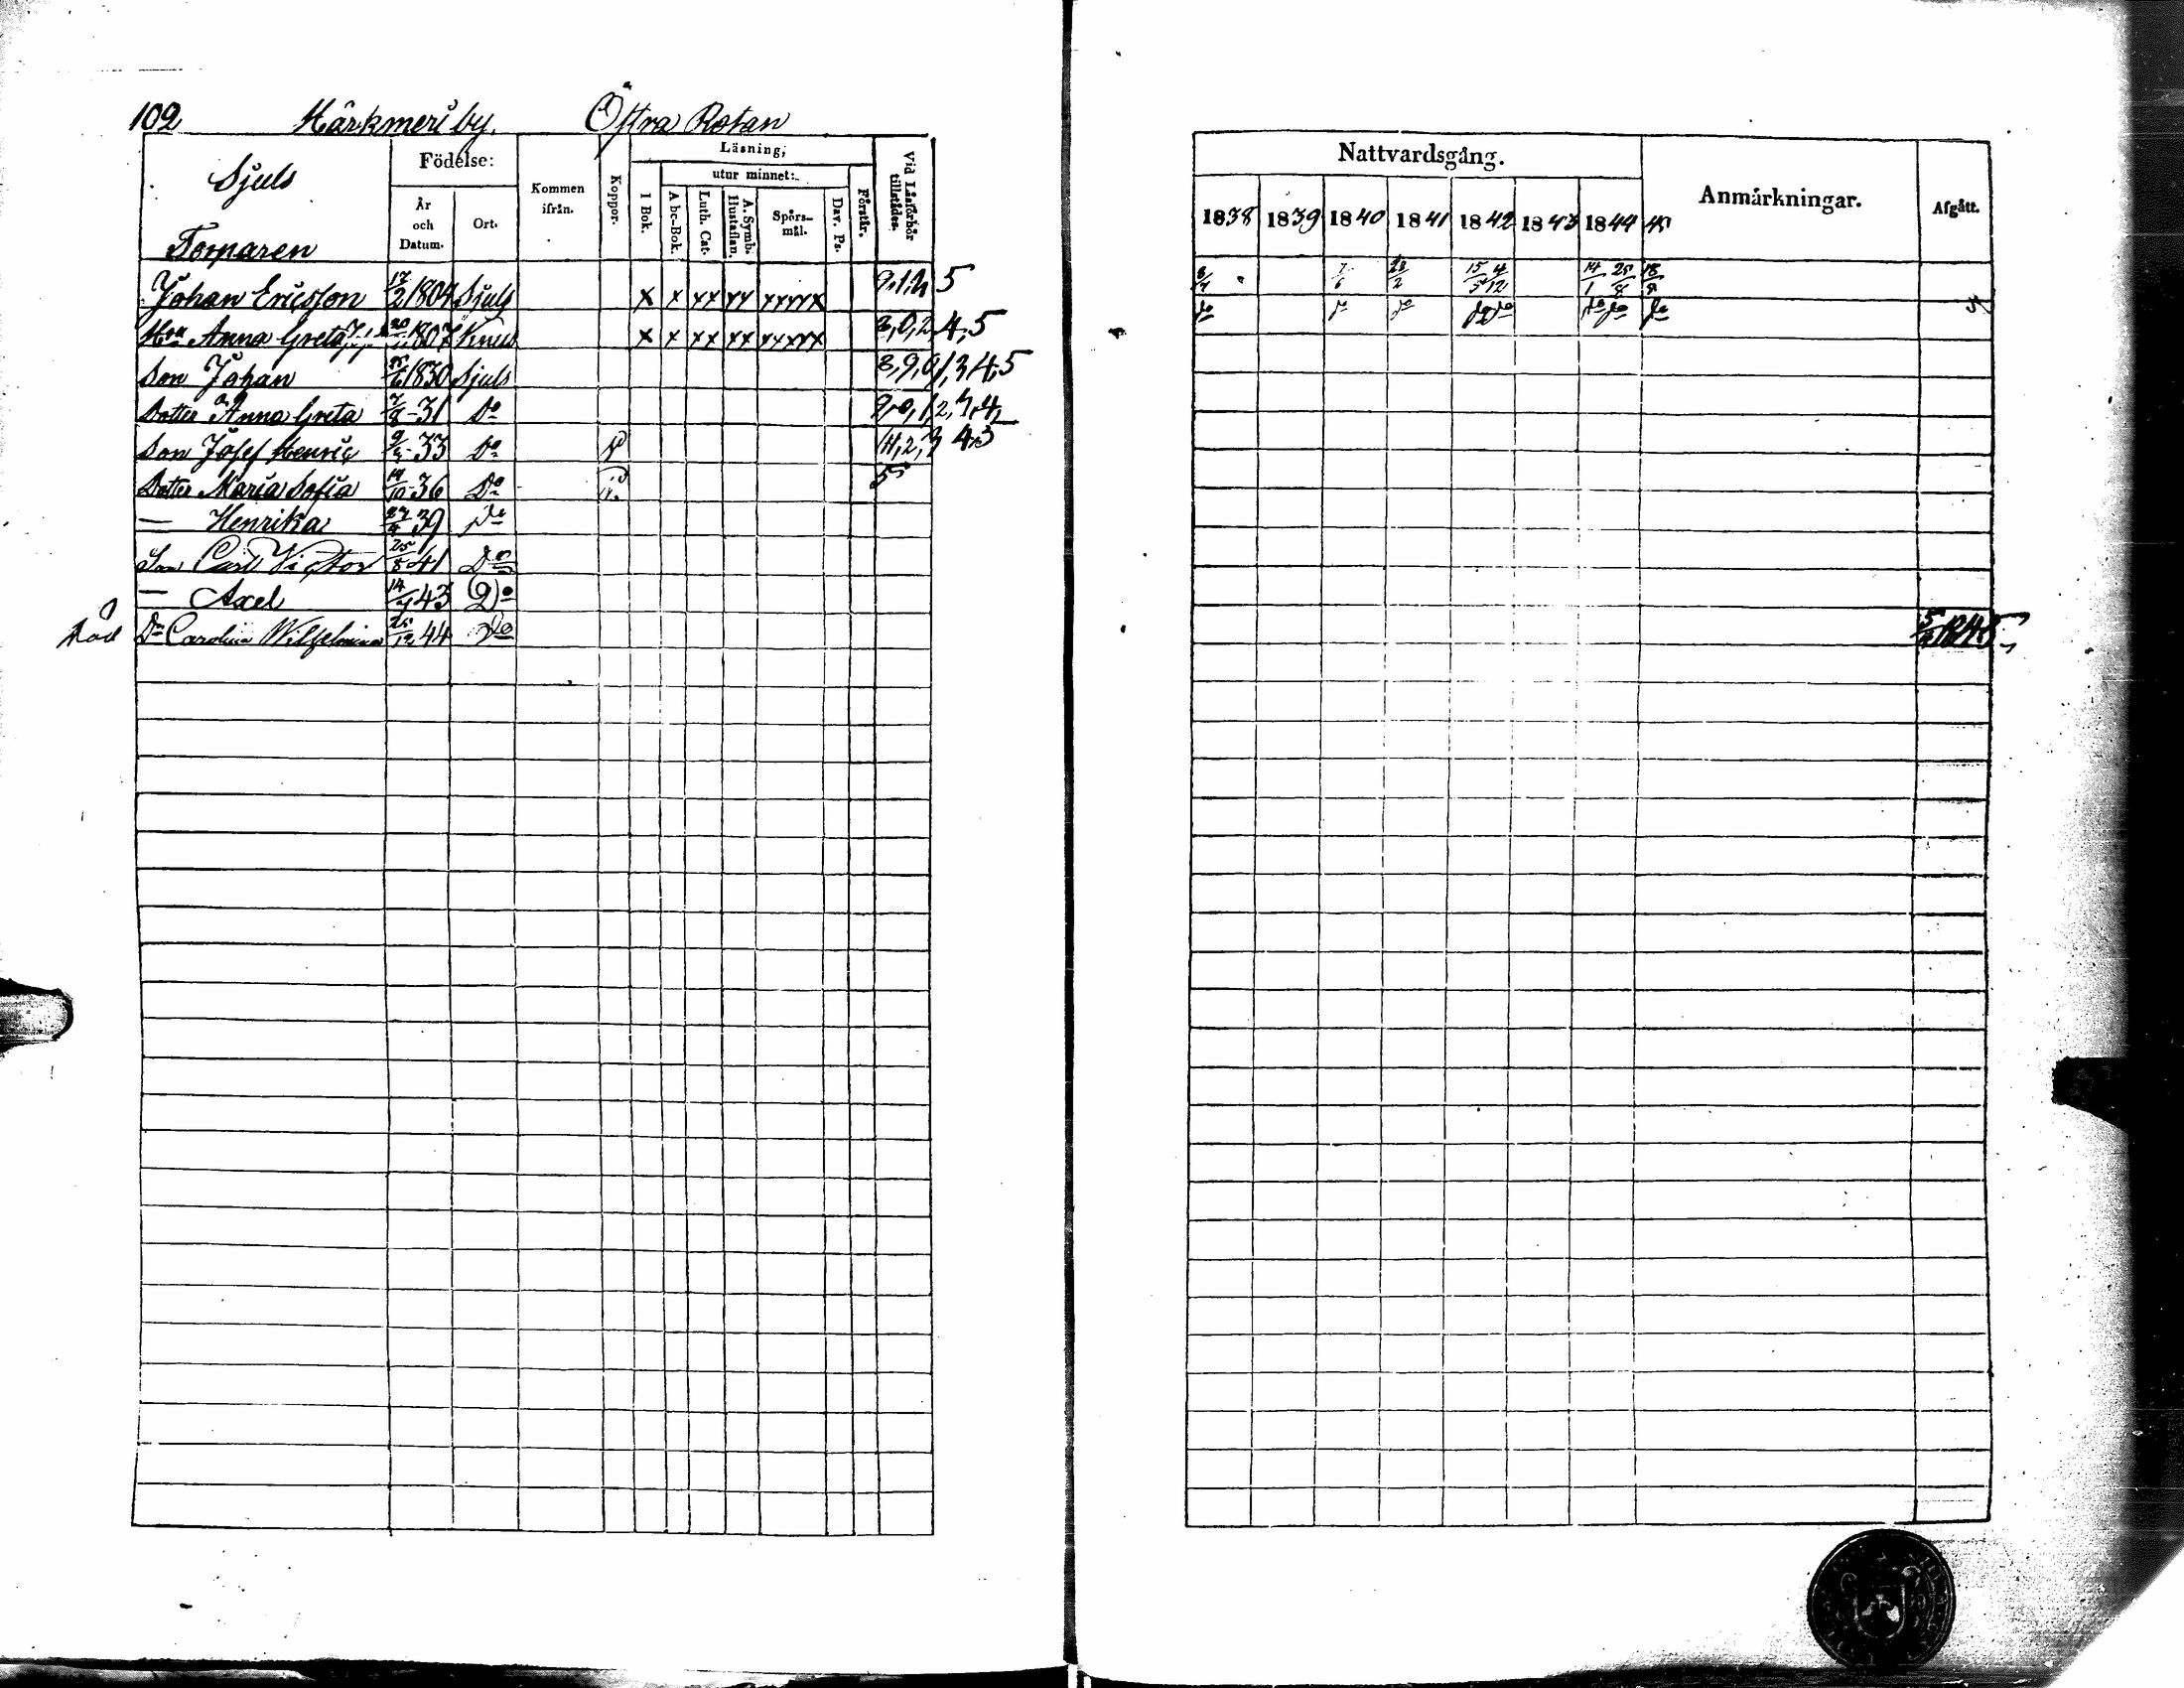 102 Härkmeri by. Östra Rotan
Sjuls
Torparen
Födelse:
År och Datum.
Ort.
Kommen ifrån.
Koppor.
Läsning;
I Bok.
utur minnet:
A bc-Bok.
Luth. Cat.
A. Symb. Hustaflan.
Spörs-mål.
Dav. Ps.
Förstår.
Vid Läsförhör tillstädes.
Johan Ericsson 17/2 1804 Sjuls x x xx xx xxxxx 5
Hu Anna Greta 1807 Knus x x xx xx xxxxx 3,0,2,4,5
Son Johan 1830 Sjuls 8,9,0,1,3,4,5
Dotter Anna Greta 7/8 -31 Do 9,0,1,2,3,4,
Son Josef Henric -33 Do
Dotter Maria Sofia 14/10 -36 Do 5
— Henrika 39 Do
Son Carl Victor 25/5 41 Do
— Axel 14/7 43 Do
Död Dr Carolina Wilhelmina 25/12 44 Do
Nattvardsgång.
1838 1839 1840 1841 1842 1843 1844 45
Anmärkningar.
Afgått.
7/6 15/5 4/12 14/1 25/8 18/8
do do do do do do do do
1845